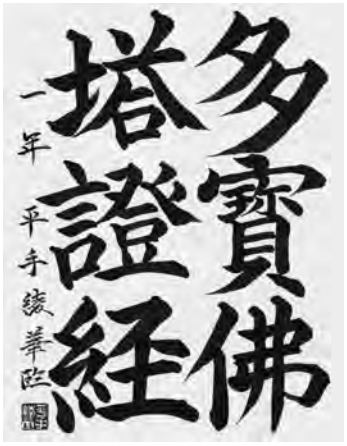 多寶佛
塔證経
一年 平手綾華臨